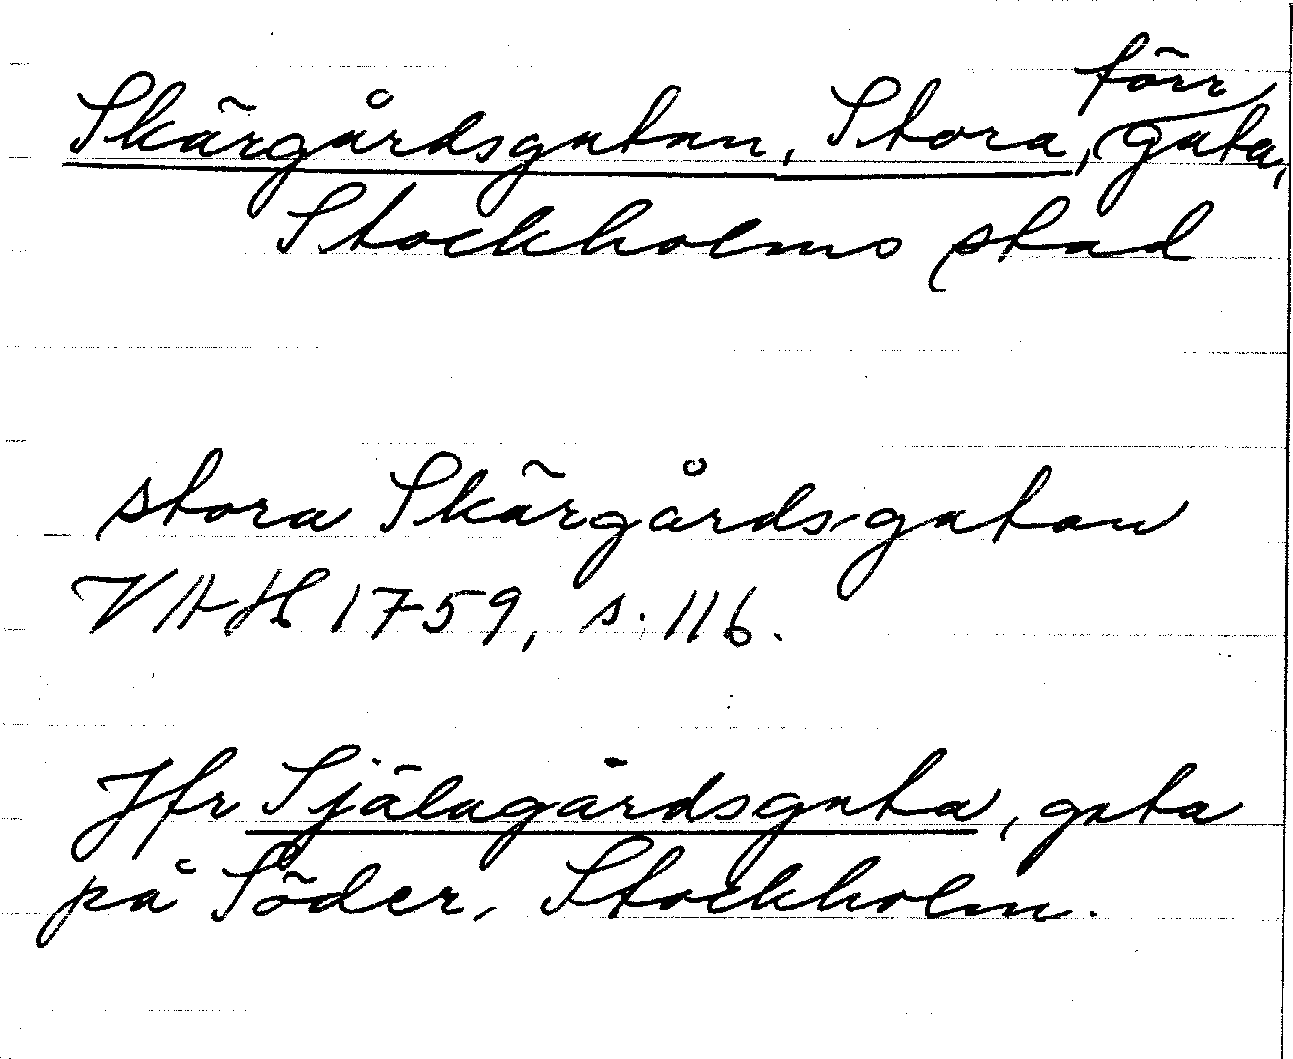 Skärgårdsgatan, Stora, förr gata,
Stockholms stad
stora Skärgårds-gatan
VAH 1759, s. 116.
Jfr Själagårdsgata, gata
på Söder, Stockholm.